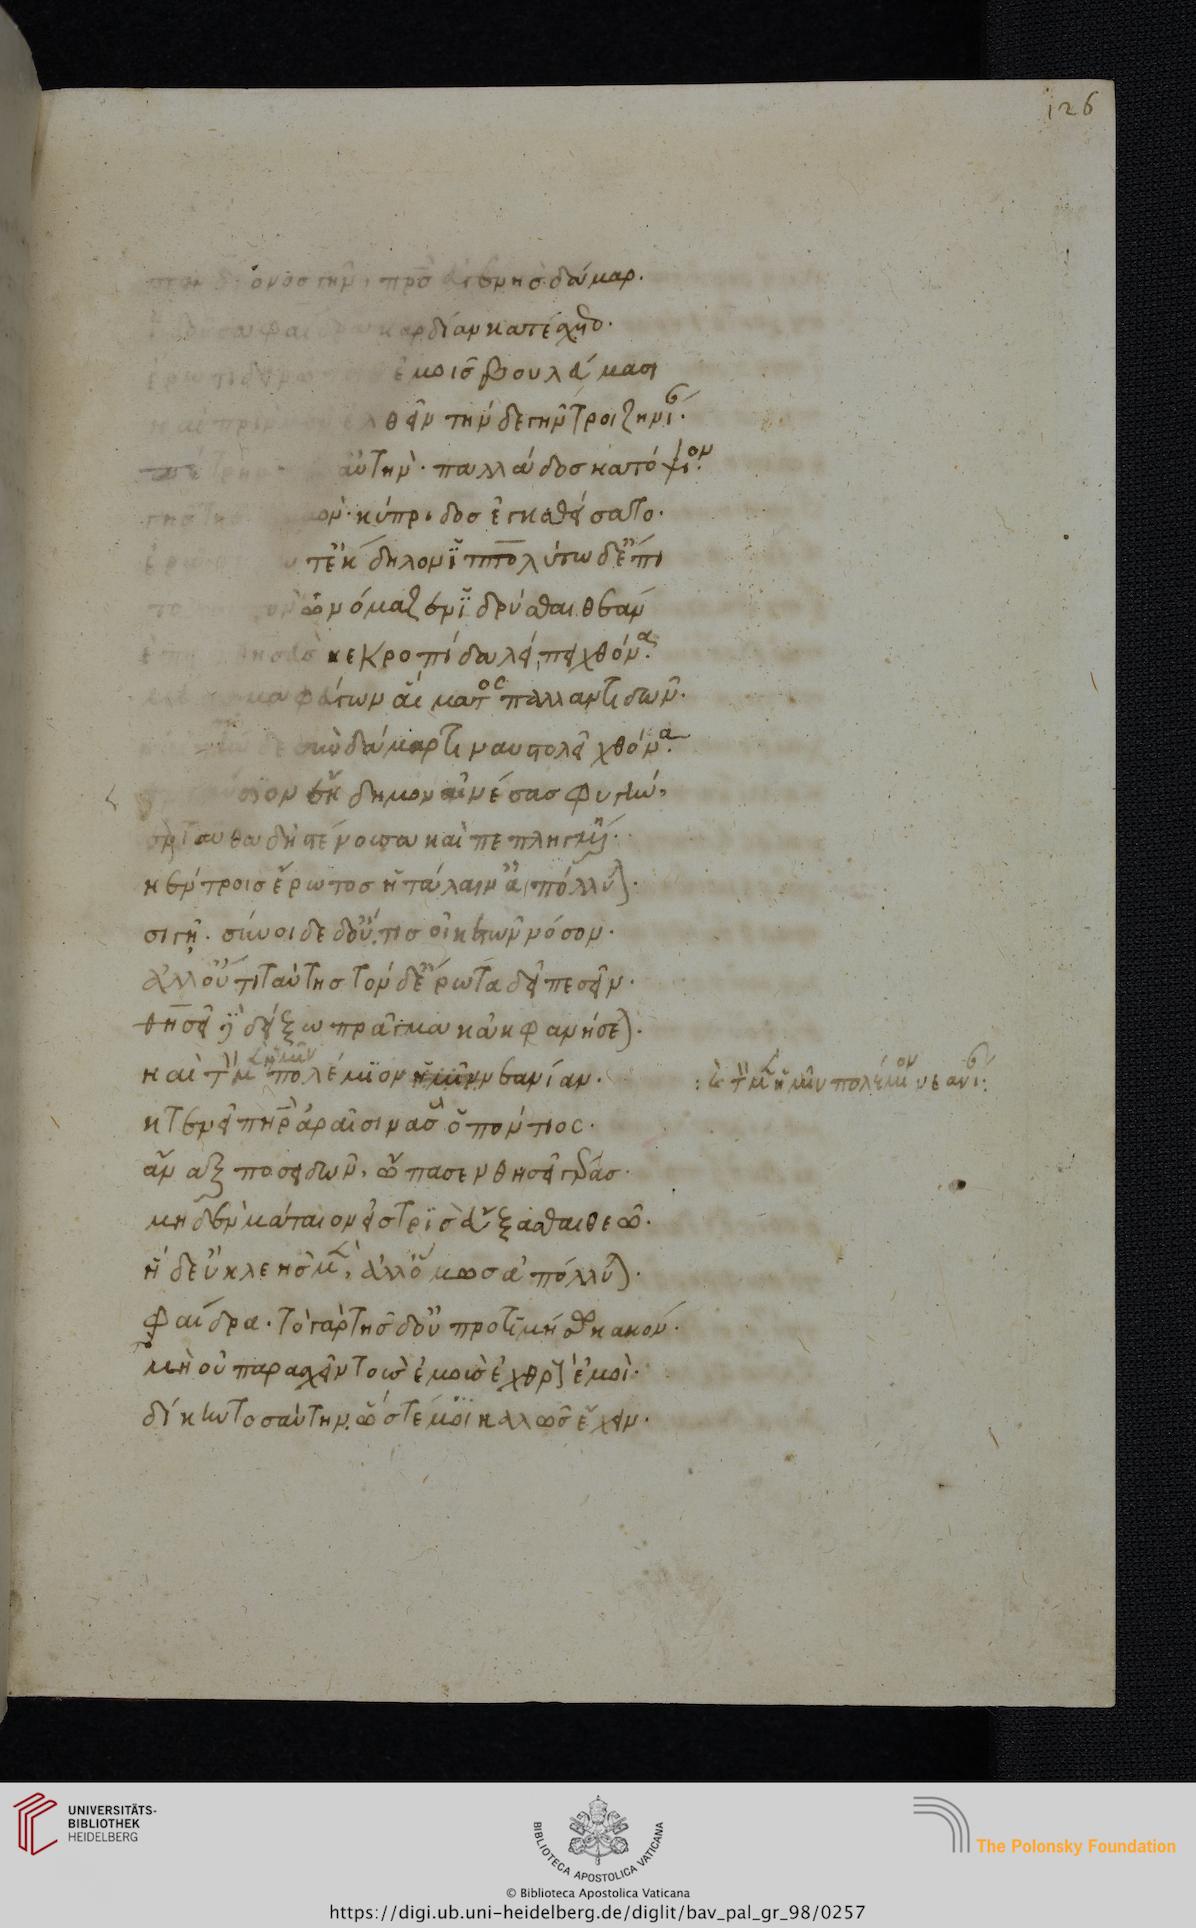 126
εὐγενὴς δάμαρ.
καρδίαν κατέσχετο.
ἐμοῖς βουλεύμασι
ἐλθεῖν τήνδε γῆν τροιζηνίαν.
αὐτὴν παλλάδος κατόψιον.
ναὸν κύπριδος ἐγκαθείσατο.
ἔκδημον ἱππολύτω δ' ἔπι
ὠνόμαζεν ἱδρύσθαι θεάν
θησεὺς κεκροπίαν λείπει χθόνα.
φεύγων αἵματος παλλαντιδῶν.
σὺν δάμαρτι ναυστολεῖ χθόνα.
ἐνιαύσιον ἔκδημον αἰνέσας φυγήν,
ἐνταῦθα δὴ στένουσα καὶ πεπληγμένη.
κέντροις ἔρωτος ἡ τάλαιν' ἀπόλλυται.
σιγῆ. σύνοιδε δ' οὔτις οἰκετῶν νόσον.
ἀλλ' οὔτι ταύτης τόνδ' ἔρωτα δεῖ πεσεῖν.
θησεῖ δὲ δείξω πρᾶγμα κἀκφανήσεται.
καὶ τὸν μὲν ἡμῖν πολέμιον νεανίαν.
: καὶ τὸν μὲν ἡμῖν πολέμιον νεανίαν:
κτενεῖ πατὴρ ἀραῖσιν ἃς ὁ πόντιος.
ἄναξ ποσειδῶν, ὤπασεν θησεῖ γέρας.
μηδὲν μάταιον εἰς τρὶς εὔξασθαι θεῶ.
ἡ δ' εὐκλεὴς μὲν, ἀλλ' ὅμως ἀπόλλυται.
φαίδρα. τὸ γὰρ τῆσδ' οὐ προτιμήσω κακόν.
μὴ οὐ παρασχεῖν τοὺς ἐμοὺς ἐχθροὺς ἐμοὶ.
δίκην τοσαύτην ὥστ' ἐμοὶ καλῶς ἔχειν.
UNIVERSITÄTS-
BIBLIOTHEK
HEIDELBERG
BIBLIOTECA APOSTOLICA VATICANA
The Polonsky Foundation
© Biblioteca Apostolica Vaticana
https://digi.ub.uni-heidelberg.de/diglit/bav_pal_gr_98/0257